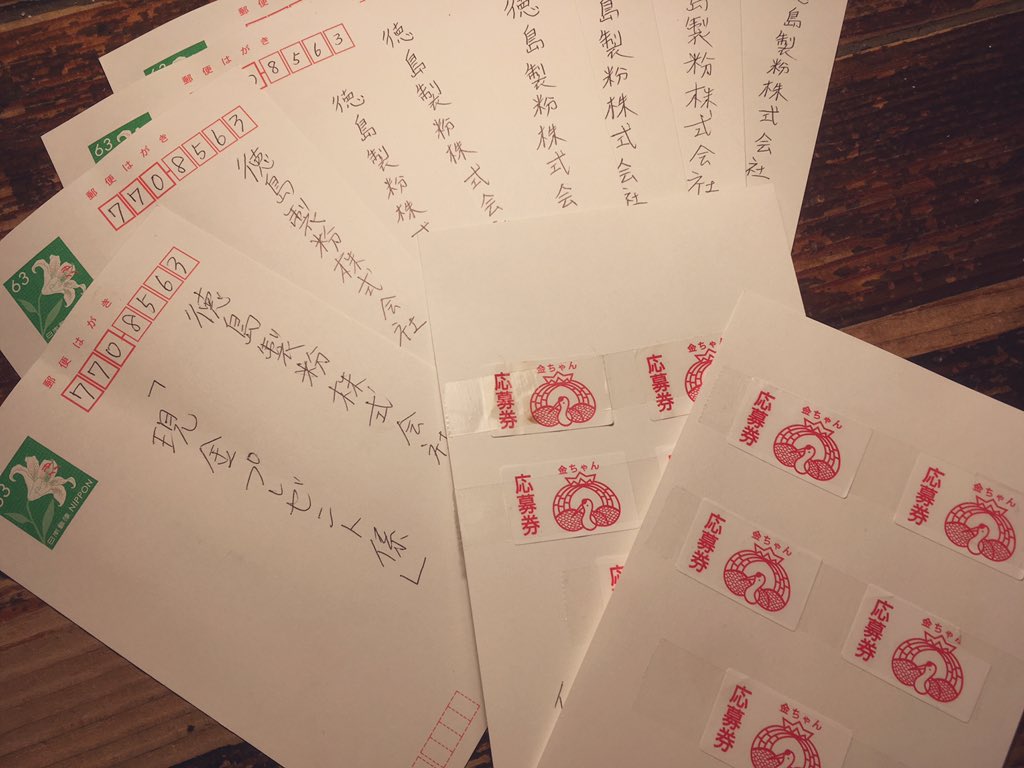 郵便はがき
7708563
徳島製粉株式会社
「現金プレゼント係」
63
日本郵便 NIPPON
郵便はがき
7708563
徳島製粉株式会社
63
郵便はがき
8563
徳島製粉株
63
郵便
徳島製粉株式会
63
徳島製粉株式会
徳島製粉株式会社
島製粉株式会社
徳島製粉株式会社
応募券
金ちゃん
応募券
金
応募券
金ちゃん
応
応募券
金ちゃん
応募券
金ちゃん
応募券
金ちゃん
応募券
金ちゃん
応募券
金ちゃん